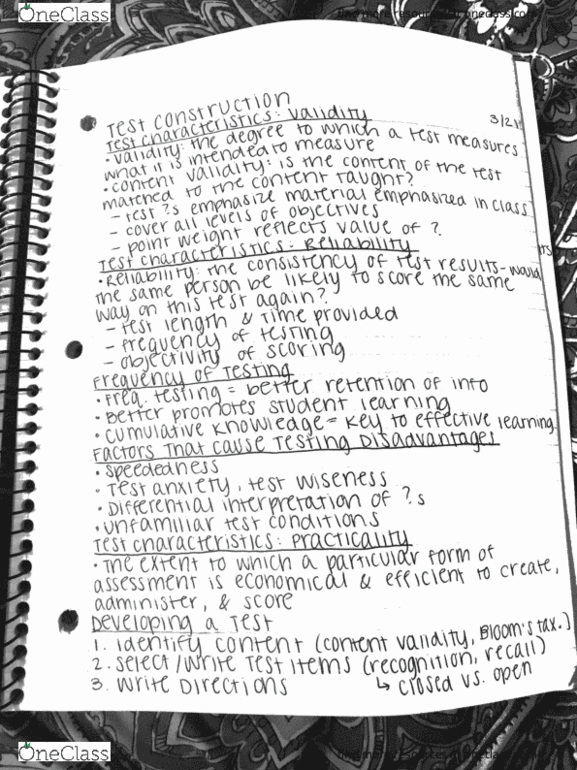 OneClass
find more resources at oneclass.com
3/21
Test Construction
Test characteristics: Validity
• Validity: the degree to which a test measures
what it is intended to measure
• content validity: is the content of the test
matched to the content taught?
- test ?s emphasize material emphasized in class
- cover all levels of objectives
- point weight reflects value of ?.
Test characteristics: Reliability
• Reliability: the consistency of test results - would
the same person be likely to score the same
way on this test again?
- test length & time provided
- frequency of testing
- objectivity of scoring
Frequency of Testing
• Freq. testing = better retention of info
• Better promotes student learning
• cumulative knowledge = key to effective learning
Factors That Cause Testing Disadvantages
• speededness
• Test anxiety, test wiseness
• Differential interpretation of ?s
• unfamiliar test conditions
Test characteristics: Practicality
• The extent to which a particular form of
assessment is economical & efficient to create,
administer, & score
Developing a Test
1. Identify content (content validity, Bloom's tax.)
2. Select/Write Test Items (recognition, recall)
↳ closed vs. open
3. Write Directions
OneClass
find more resources at oneclass.com